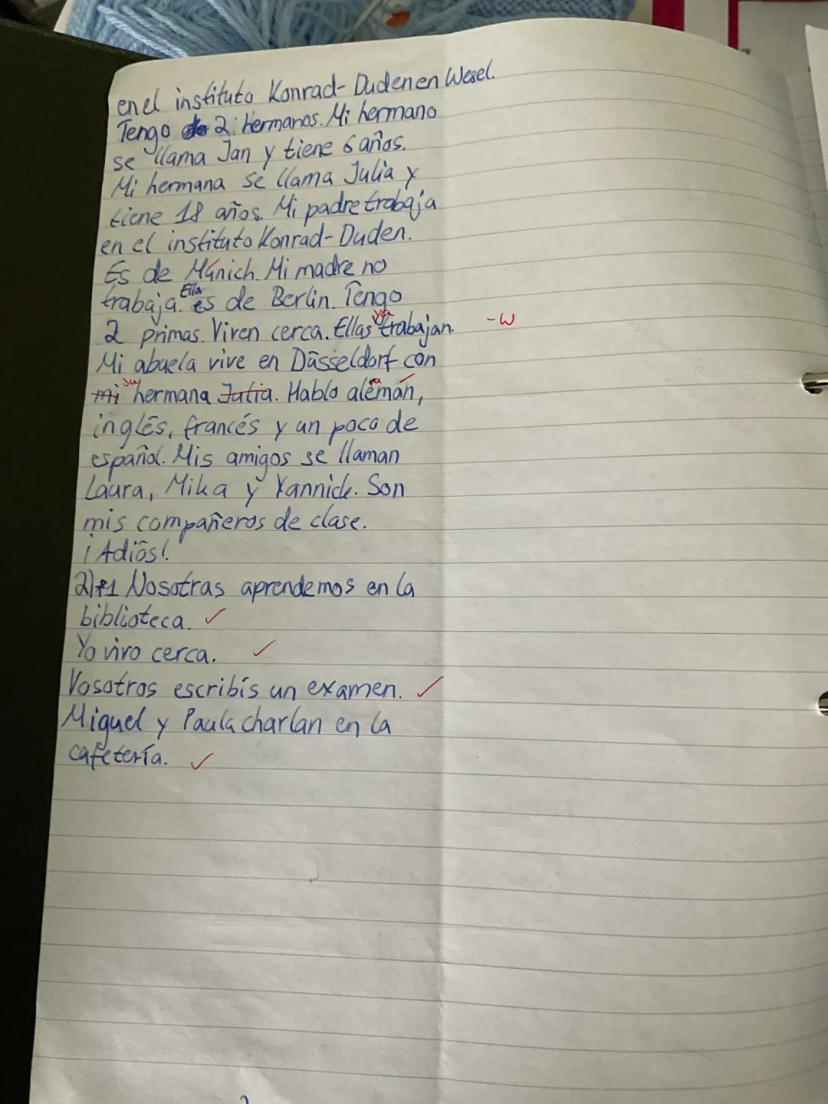 en el instituto Konrad-Duden en Wesel.
Tengo 2 hermanos. Mi hermano
se llama Jan y tiene 6 años.
Mi hermana se llama Julia y
tiene 18 años. Mi padre trabaja
en el instituto Konrad-Duden.
Es de Múnich. Mi madre no
trabaja. Ella es de Berlin. Tengo
2 primas. Viven cerca. Ellas ya trabajan. -W
Mi abuela vive en Düsseldorf con
mi su hermana Jutta. Hablo alemán,
inglés, francés y un poco de
español. Mis amigos se llaman
Laura, Mika y Yannick. Son
mis compañeros de clase.
¡Adiós!
2) 1 Nosotras aprendemos en la
biblioteca. ✓
Yo vivo cerca. ✓
Vosotros escribís un examen. ✓
Miguel y Paula charlan en la
cafetería. ✓